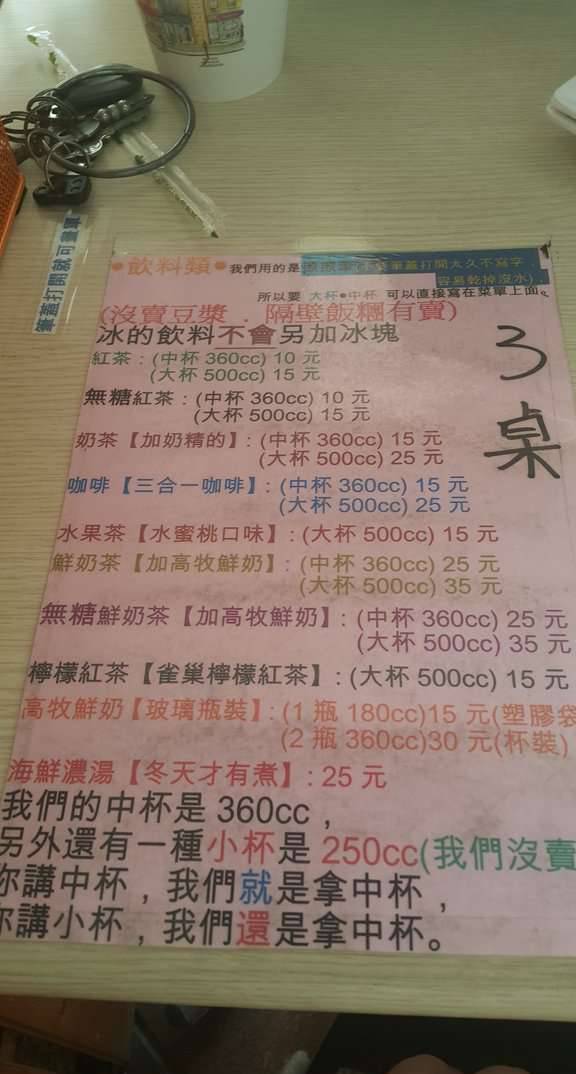 筆蓋打開就可畫單
●飲料類● 我們用的是 筆蓋打開太久不寫字
容易乾掉沒水)
所以要 大杯●中杯 可以直接寫在菜單上面。
(沒賣豆漿．隔壁飯糰有賣)
冰的飲料不會另加冰塊
3桌
紅茶：(中杯 360cc) 10 元
(大杯 500cc) 15 元
無糖紅茶：(中杯 360cc) 10 元
(大杯 500cc) 15 元
奶茶【加奶精的】：(中杯 360cc) 15 元
(大杯 500cc) 25 元
咖啡【三合一咖啡】：(中杯 360cc) 15 元
(大杯 500cc) 25 元
水果茶【水蜜桃口味】：(大杯 500cc) 15 元
鮮奶茶【加高牧鮮奶】：(中杯 360cc) 25 元
(大杯 500cc) 35 元
無糖鮮奶茶【加高牧鮮奶】：(中杯 360cc) 25 元
(大杯 500cc) 35 元
檸檬紅茶【雀巢檸檬紅茶】：(大杯 500cc) 15 元
高牧鮮奶【玻璃瓶裝】：(1 瓶 180cc)15 元(塑膠袋
(2 瓶 360cc)30 元(杯裝)
海鮮濃湯【冬天才有煮】：25 元
我們的中杯是 360cc，
另外還有一種小杯是 250cc(我們沒賣
你講中杯，我們就是拿中杯，
你講小杯，我們還是拿中杯。